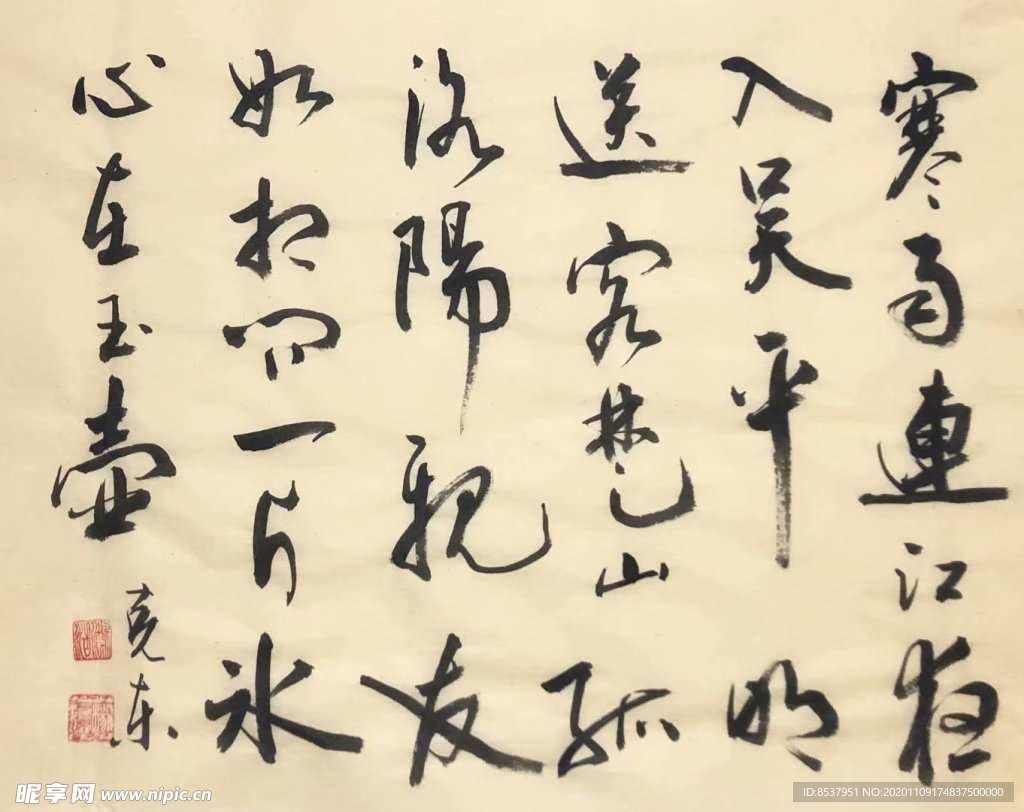 寒雨連江夜
入吴平明
送客楚山孤
洛陽親友
如相问一片冰
心在玉壺
克东
昵享网 www.nipic.cn
ID:8537951 NO:20201109174837500000